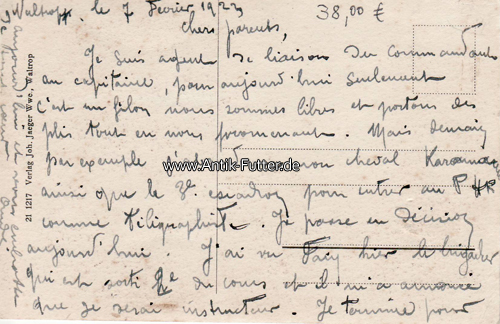 Waltrop, le 7 Février 1923
38,00 €
chers parents,
Je suis agent de liaison du Commandant
au capitaine, pour aujourd'hui seulement
c'est un filon nous sommes libres et portons des
plis tout en nous promenant. Mais demain
par exemple mon cheval
ainsi que le 3e escadron pour entrer au P
comme téligraphist. Je passe en
aujourd'hui. J'ai vu hier le brigadier
qui est sorti 2e du cours et il m'a annoncé
que je serai instructeur. Je termine pour
aujourd'hui et vous embrasse
21 1217 Verlag Joh. Jaeger Wwe., Waltrop
www.Antik-Futter.de